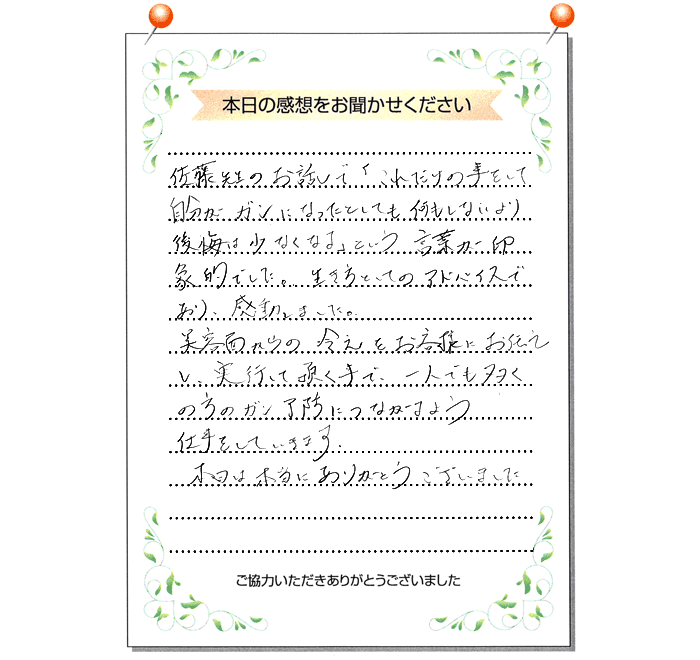 本日の感想をお聞かせください
佐藤先生のお話しで「これだけの事をして
自分がガンになったとしても何もしないより
後悔は少なくなる」という言葉が印
象的でした。生き方としてのアドバイスで
あり、感動しました。
美容面からの冷えをお客様にお伝え
し、実行して頂く事で、一人でも多く
の方のガン予防につながるよう
仕事をしていきます。
本日は本当にありがとうございました
ご協力いただきありがとうございました